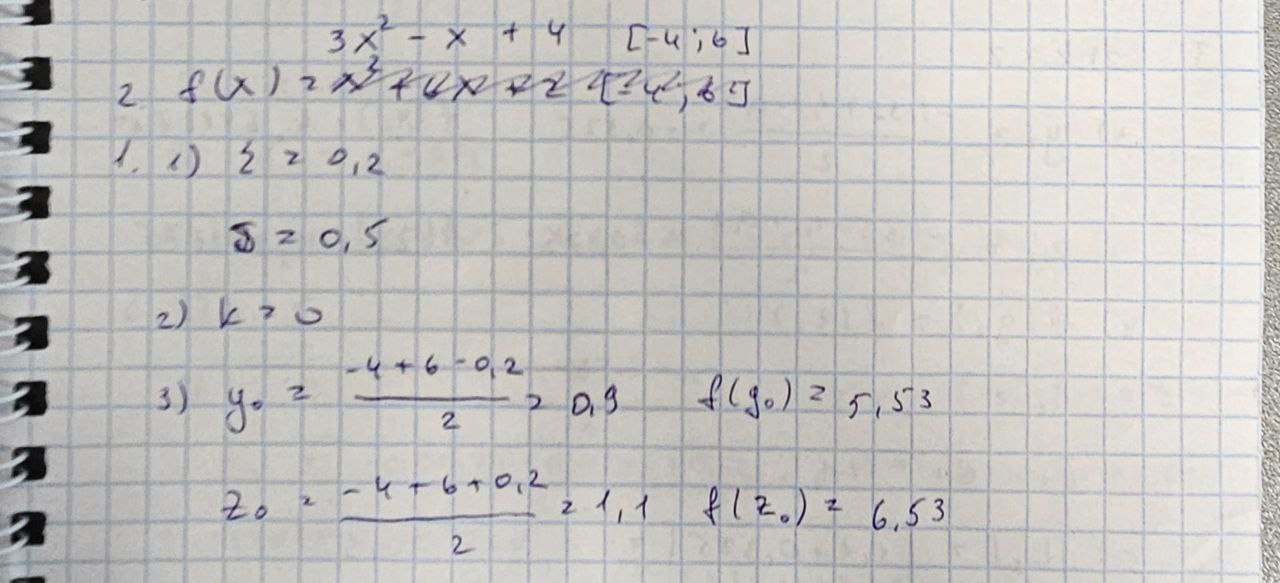 3x² - x + 4 [-4; 6]
2. f(x) = x³ + 6x + 2 [-4; 6]
1. 1) ξ = 0,2
δ = 0,5
2) k = 0
3) y₀ = (-4 + 6 - 0,2)/2 = 0,9 f(y₀) = 5,53
z₀ = (-4 + 6 + 0,2)/2 = 1,1 f(z₀) = 6,53